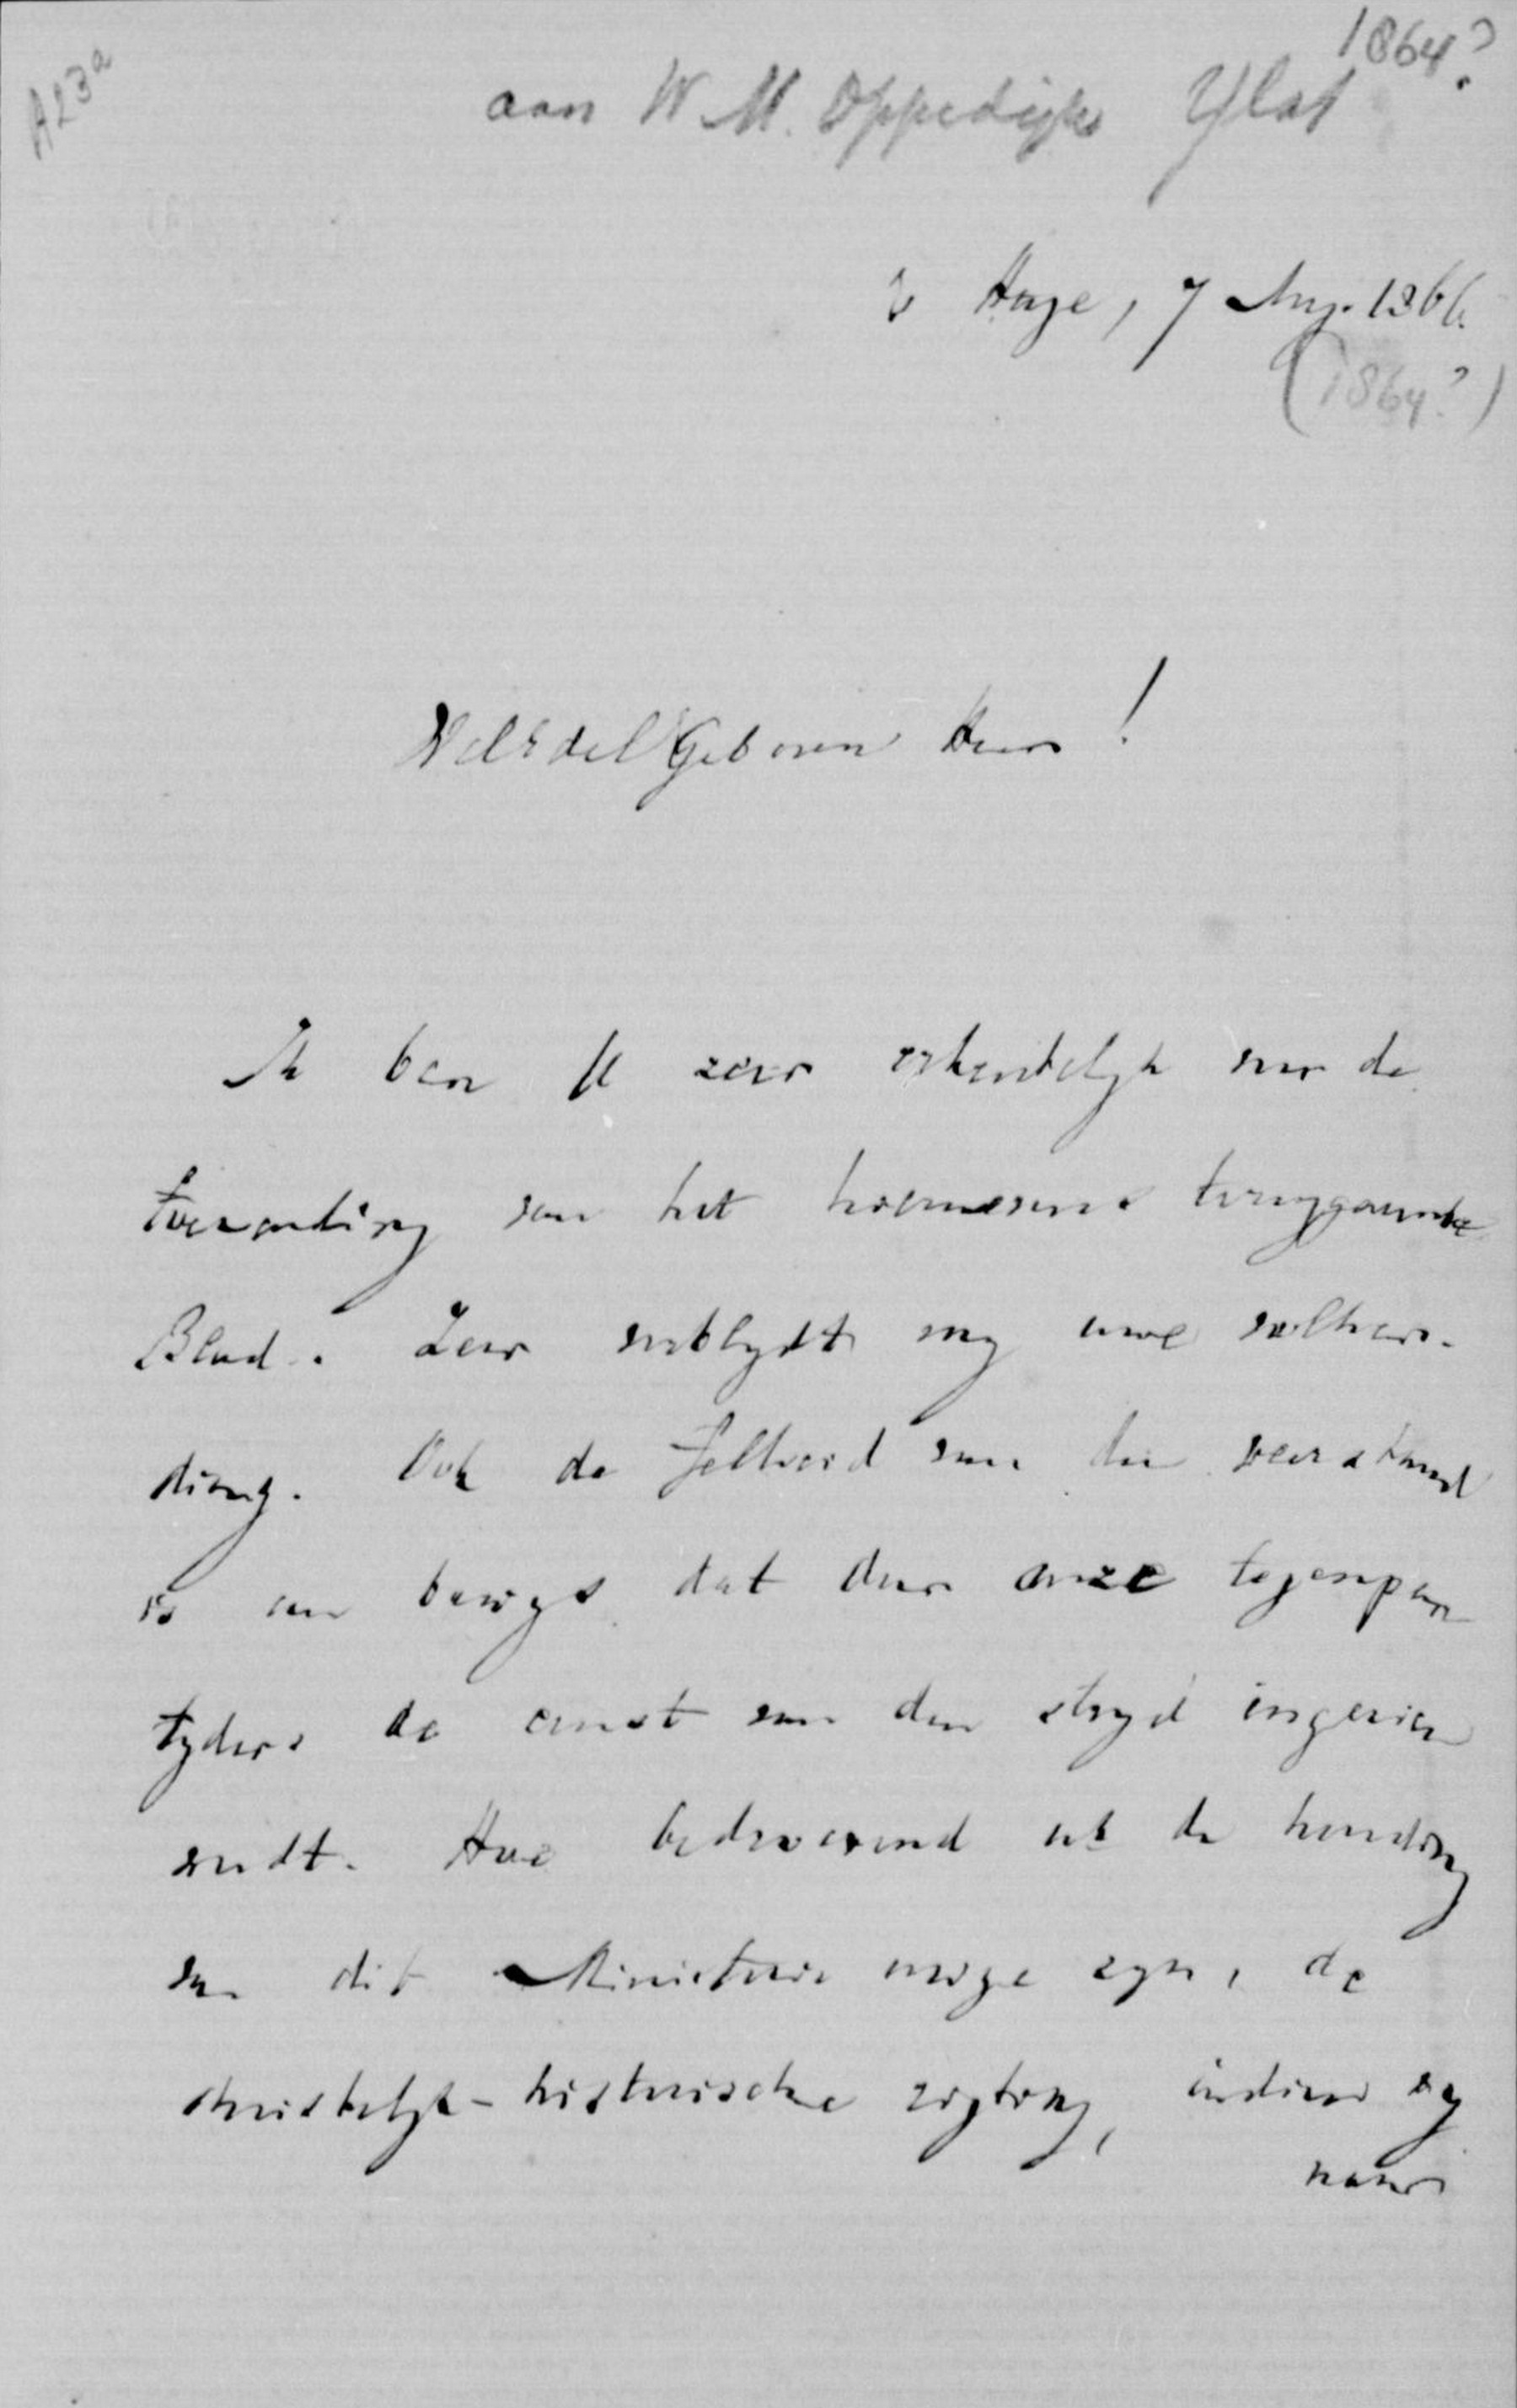 1864?
A23a
aan W. M. Oppedijk Ylst
's Hage, 7 Aug. 1866.
(1864?)
WelEdelGeboren Heer!
Ik ben U zeer erkentelijk voor de
toezending van het hiernevens teruggaande
Blad. Zeer verblydt my uwe volhar-
ding. Ook de felheid van den weerstand
is een bewys dat door onze tegenpar
tyders de ernst van den stryd ingezien
wordt. Hoe bedroevend ook de houding
van dit Ministerie moge zyn, de
christelyk-historische rigting, indien zy
naar